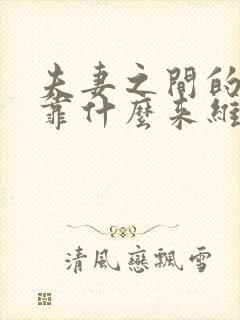 夫妻之間的
靠什麼來維
清風戀飄雪